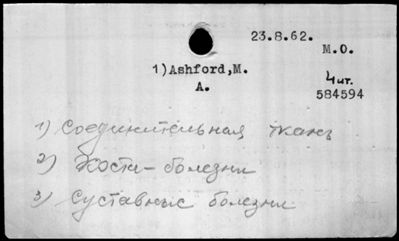 23.8.62.
М.О.
1)Ashford,M.
A.
4 чт.
584594
1) Соединительная ткань
2) Кости - болезни
3) Суставные болезни